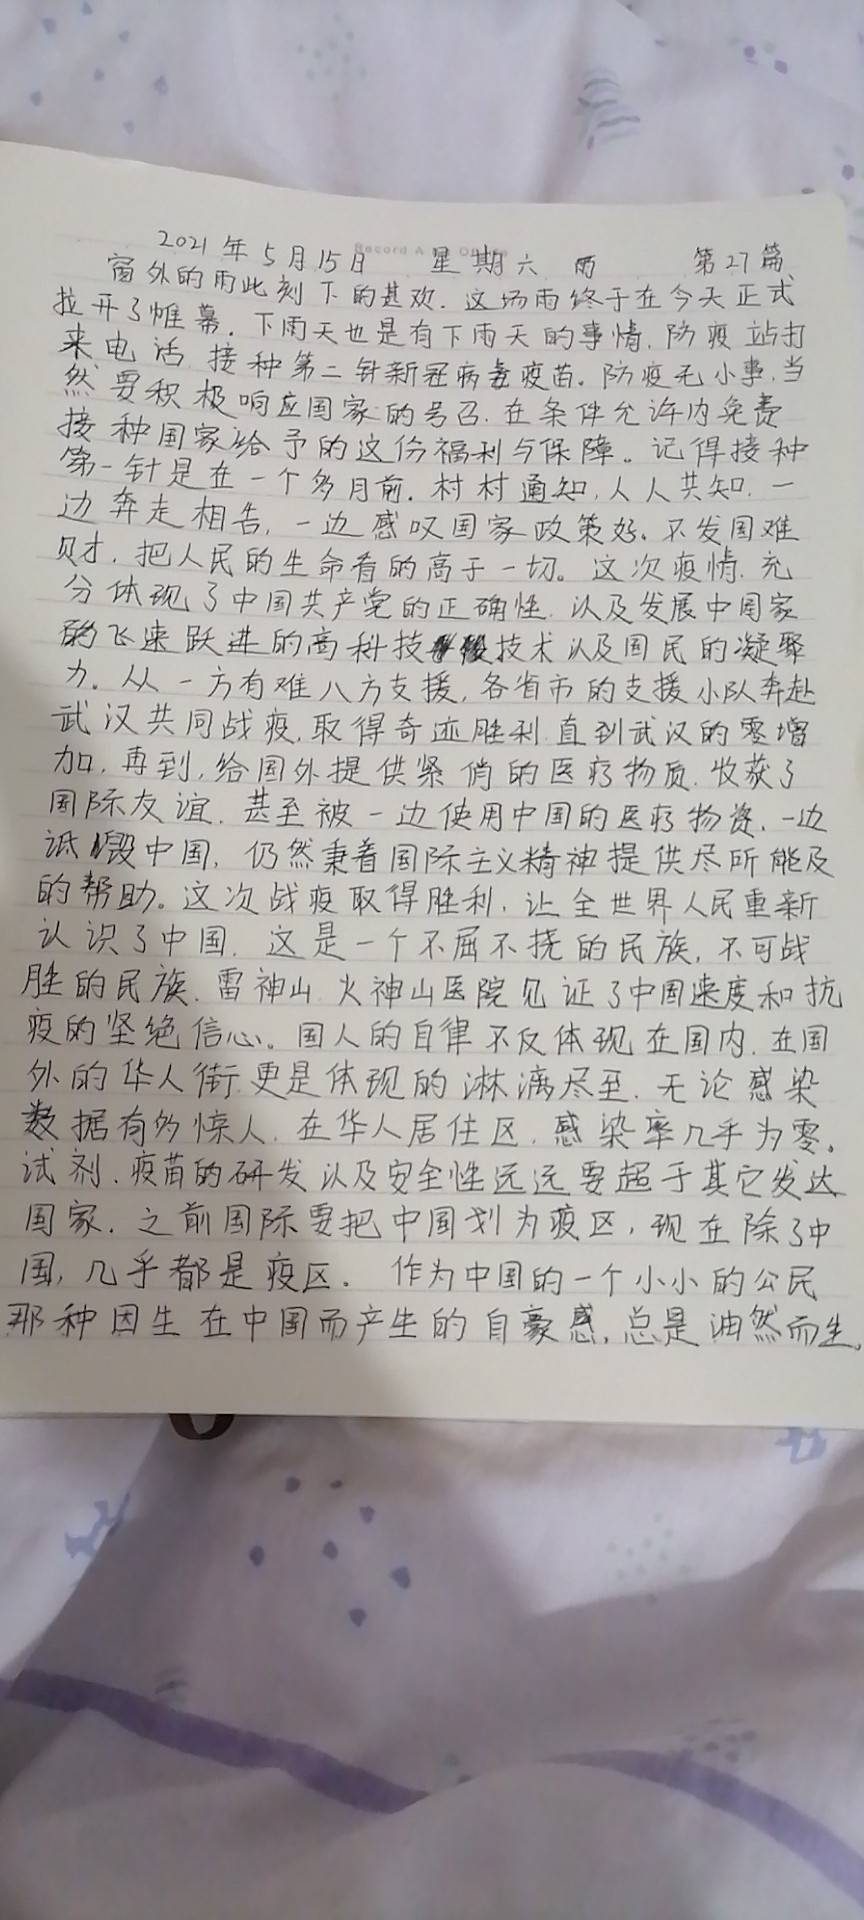 2021年5月15日 星期六 雨 第27篇
窗外的雨此刻下的甚欢.这场雨终于在今天正式
拉开了帷幕.下雨天也是有下雨天的事情.防疫站打
来电话 接种第二针新冠病毒疫苗。防疫无小事.当
然要积极响应国家的号召.在条件允许内免费
接种国家给予的这份福利与保障。记得接种
第一针是在一个多月前.村村通知,人人共知.一
边奔走相告,一边感叹国家政策好、不发国难
财.把人民的生命看的高于一切。这次疫情.充
分体现了中国共产党的正确性.以及发展中国家
的飞速跃进的高科技技术以及国民的凝聚
力。从一方有难八方支援,各省市的支援小队奔赴
武汉共同战疫,取得奇迹胜利.直到武汉的零增
加.再到,给国外提供紧俏的医疗物质.收获了
国际友谊.甚至被一边使用中国的医疗物资.一边
诋毁中国,仍然秉着国际主义精神提供尽所能及
的帮助。这次战疫取得胜利.让全世界人民重新
认识了中国.这是一个不屈不挠的民族,不可战
胜的民族.雷神山 火神山医院见证了中国速度和抗
疫的坚绝信心。国人的自律不反体现在国内.在国
外的华人街更是体现的淋漓尽至.无论感染
数据有多惊人.在华人居住区.感染率几乎为零。
试剂.疫苗的研发以及安全性远远要超于其它发达
国家.之前国际要把中国划为疫区,现在除了中
国,几乎都是疫区. 作为中国的一个小小的公民
那种因生在中国而产生的自豪感,总是油然而生。